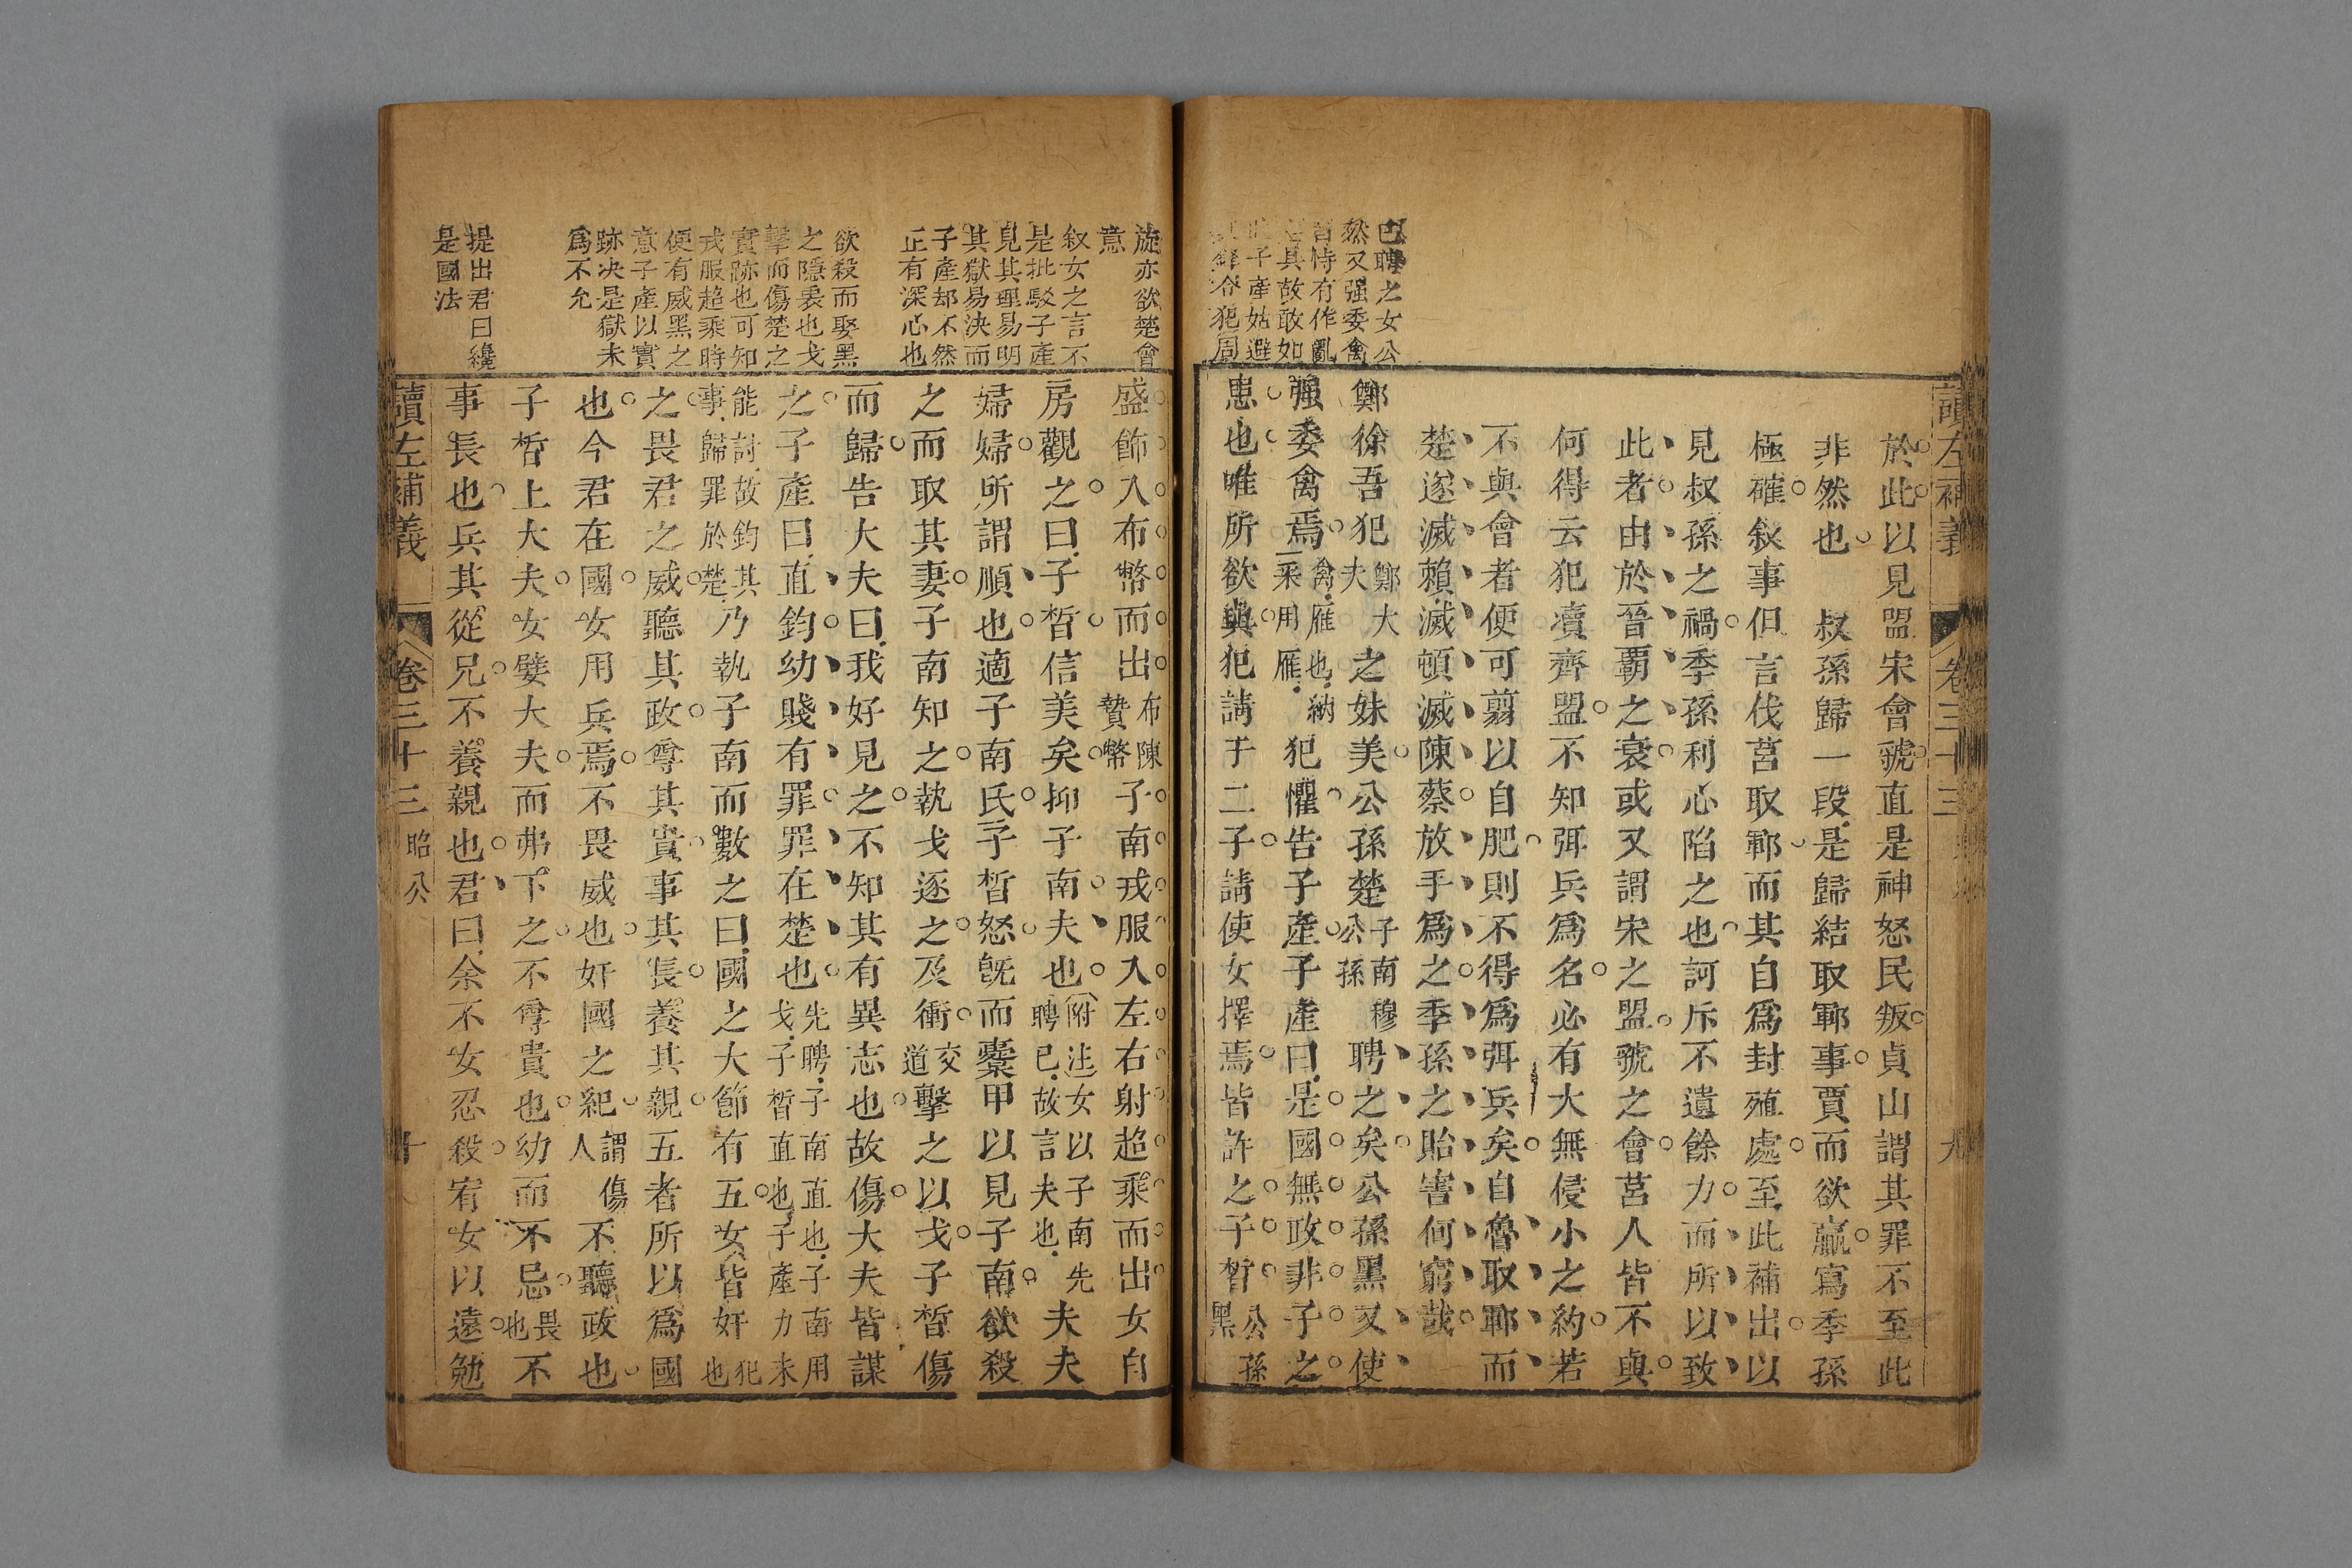 讀左補義
卷三十三
九
於此以見盟宋會虢直是神怒民叛貞山謂其罪不至此
非然也　叔孫歸一段是歸結取鄆事賈而欲贏寫季孫
極確敘事但言伐莒取鄆而其自為封殖處至此補出以
見叔孫之禍季孫利心陷之也訶斥不遺餘力而所以致
此者由於晉霸之衰或又謂宋之盟虢之會莒人皆不與
何得云犯瀆齊盟不知弭兵為名必有大無侵小之約若
不與會者便可翦以自肥則不得為弭兵矣自魯取鄆而
楚遂滅賴滅頓滅陳蔡放手為之季孫之貽害何窮哉
已聘之女公
然又强委禽
皆恃有作亂
其故敢如
子產姑避
犯周
鄭徐吾犯鄭大夫之妹美公孫楚子南穆公孫聘之矣公孫黑又使
强委禽焉禽雁也納采用雁犯懼告子產子產曰是國無政非子之
患也唯所欲與犯請于二子請使女擇焉皆許之子晳公孫黑
旋亦欲楚會
意
叙女之言不
是批駁子產
見其理易明
其獄易決而
子產却不然
正有深心也
欲殺而娶黑
之隱衷也戈
擊而傷楚之
實跡也可知
戎服超乘時
便有威黑之
意子產以實
跡決是獄未
為不允
提出君曰纔
是國法
盛飾入布幣而出布陳贄幣子南戎服入左右射超乘而出女自
房觀之曰子晳信美矣抑子南夫也附注女以子南先聘已故言夫也夫夫
婦婦所謂順也適子南氏子晳怒旣而櫜甲以見子南欲殺
之而取其妻子南知之執戈逐之及衝交道擊之以戈子晳傷
而歸告大夫曰我好見之不知其有異志也故傷大夫皆謀
之子產曰直鈞幼賤有罪罪在楚也先聘子南直也子南用戈子晳直也子產力未
能討故鈞其事歸罪於楚乃執子南而數之曰國之大節有五女皆奸犯也
之畏君之威聽其政尊其貴事其長養其親五者所以為國
也今君在國女用兵焉不畏威也奸國之紀謂傷人不聽政也
子晳上大夫女嬖大夫而弗下之不尊貴也幼而不忌畏也不
事長也兵其從兄不養親也君曰余不女忍殺宥女以遠勉
讀左補義
卷三十三
昭公
十